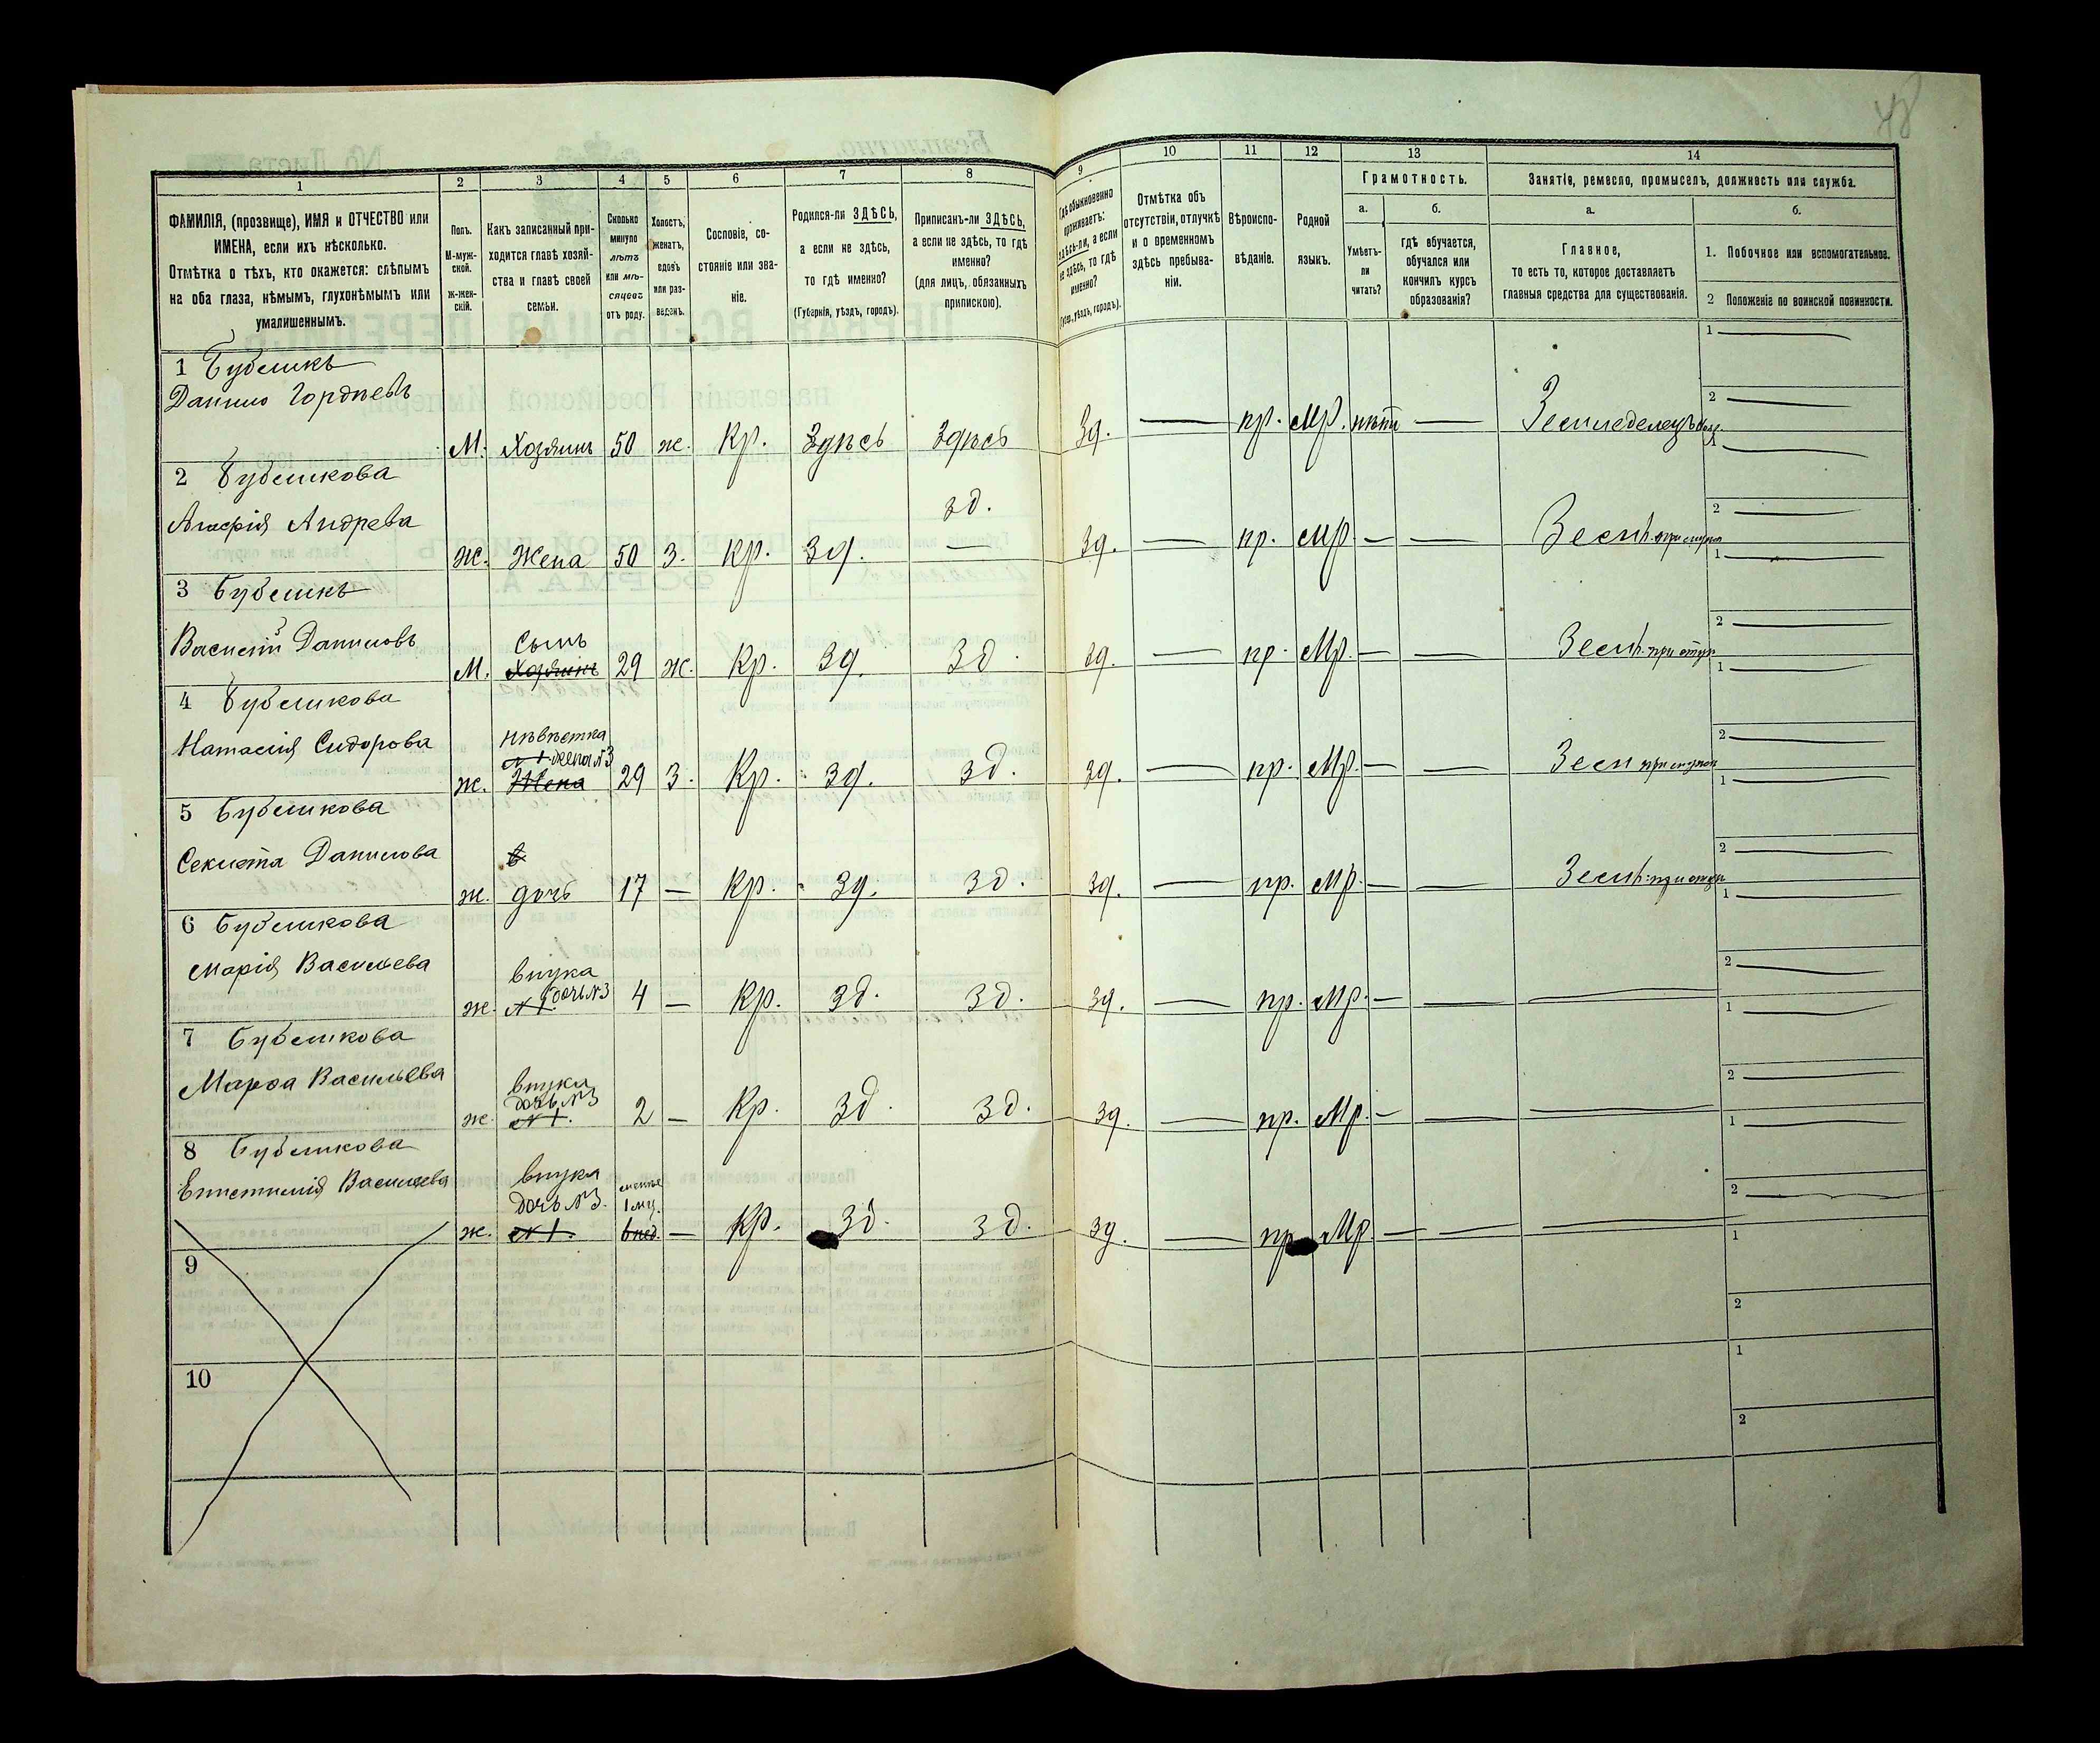 48
1
2
3
4
5
6
7
8
9
10
11
12
13
14
ФАМИЛІЯ, (прозвище), ИМЯ и ОТЧЕСТВО или
ИМЕНА, если ихъ нѣсколько.
Отмѣтка о тѣхъ, кто окажется: слѣпымъ
на оба глаза, нѣмымъ, глухонѣмымъ или
умалишеннымъ.
Полъ.
М-муж-
ской.
Ж-жен-
скій.
Какъ записанный при-
ходится главѣ хозяй-
ства и главѣ своей
семьи.
Сколько
минуло
лѣтъ
или мѣ-
сяцевъ
отъ роду.
Холостъ,
женатъ,
вдовъ
или раз-
веденъ.
Сословіе, со-
стояніе или зва-
ніе.
Родился-ли ЗДѢСЬ,
а если не здѣсь,
то гдѣ именно?
(Губернія, уѣздъ, городъ).
Приписанъ-ли ЗДѢСЬ,
а если не здѣсь, то гдѣ
именно?
(для лицъ, обязанныхъ
припискою).
Гдѣ обыкновенно
проживаетъ:
здѣсь-ли, а если
не здѣсь, то гдѣ
именно?
(Губер., уѣздъ, городъ).
Отмѣтка объ
отсутствіи, отлучкѣ
и о временномъ
здѣсь пребыва-
ніи.
Вѣроиспо-
вѣданіе.
Родной
языкъ.
Грамотность.
а.
Умѣетъ-
ли
читать?
б.
гдѣ обучается,
обучался или
кончилъ курсъ
образованія?
Занятіе, ремесло, промыселъ, должность или служба.
а.
Главное,
то есть то, которое доставляетъ
главныя средства для существованія.
б.
1. Побочное или вспомогательное.
2 Положеніе по воинской повинности.
1 Бубликъ
Данило Гордѣевъ
М. Хозяинъ 50 ж. Кр. Здѣсь Здѣсь Зд. — пр. Мр. нѣтъ — Земледелецъ
1 —
2 —
2 Бубликова
Агафія Андрева
Ж. Жена 50 З. Кр. Зд. зд. — Зд. — пр. Мр — —
1 —
2 —
3 Бубликъ
Василій Даниловъ
Сынъ
М. Хозяинъ 29 ж. Кр. Зд. Зд. Зд. — пр. Мр. — —
1 —
2 —
4 Бубликова
Натасия Сидорова
нѣвѣстка
№ 1 жена №3
ж. Жена 29 З. Кр. Зд. Зд. Зд. — пр. Мр. — —
1 —
2 —
5 Бубликова
Секлета Данилова
ж. дочь 17 — Кр. Зд. Зд. Зд. — пр. Мр. — —
1 —
2 —
6 Бубликова
Марія Васильева
внука
ж. № 1. дочь №3 4 — Кр. Зд. Зд. Зд. — пр. Мр. — — —
1 —
2 —
7 Бубликова
Марфа Васильева
внука
дочь №3
ж. № 1. 2 — Кр. Зд. Зд. Зд. — пр. Мр. — — —
1 —
2 —
8 Бубликова
Епистимія Васильева
внука
дочь №3. 1 мц.
ж. № 1. 6 нед. — Кр. Зд. Зд. Зд. — пр. Мр. — — —
1 —
2 —
9
1
2
10
1
2